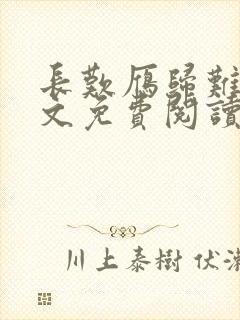 長歎雁歸難
文免費閱讀
川上泰樹 伏瀨